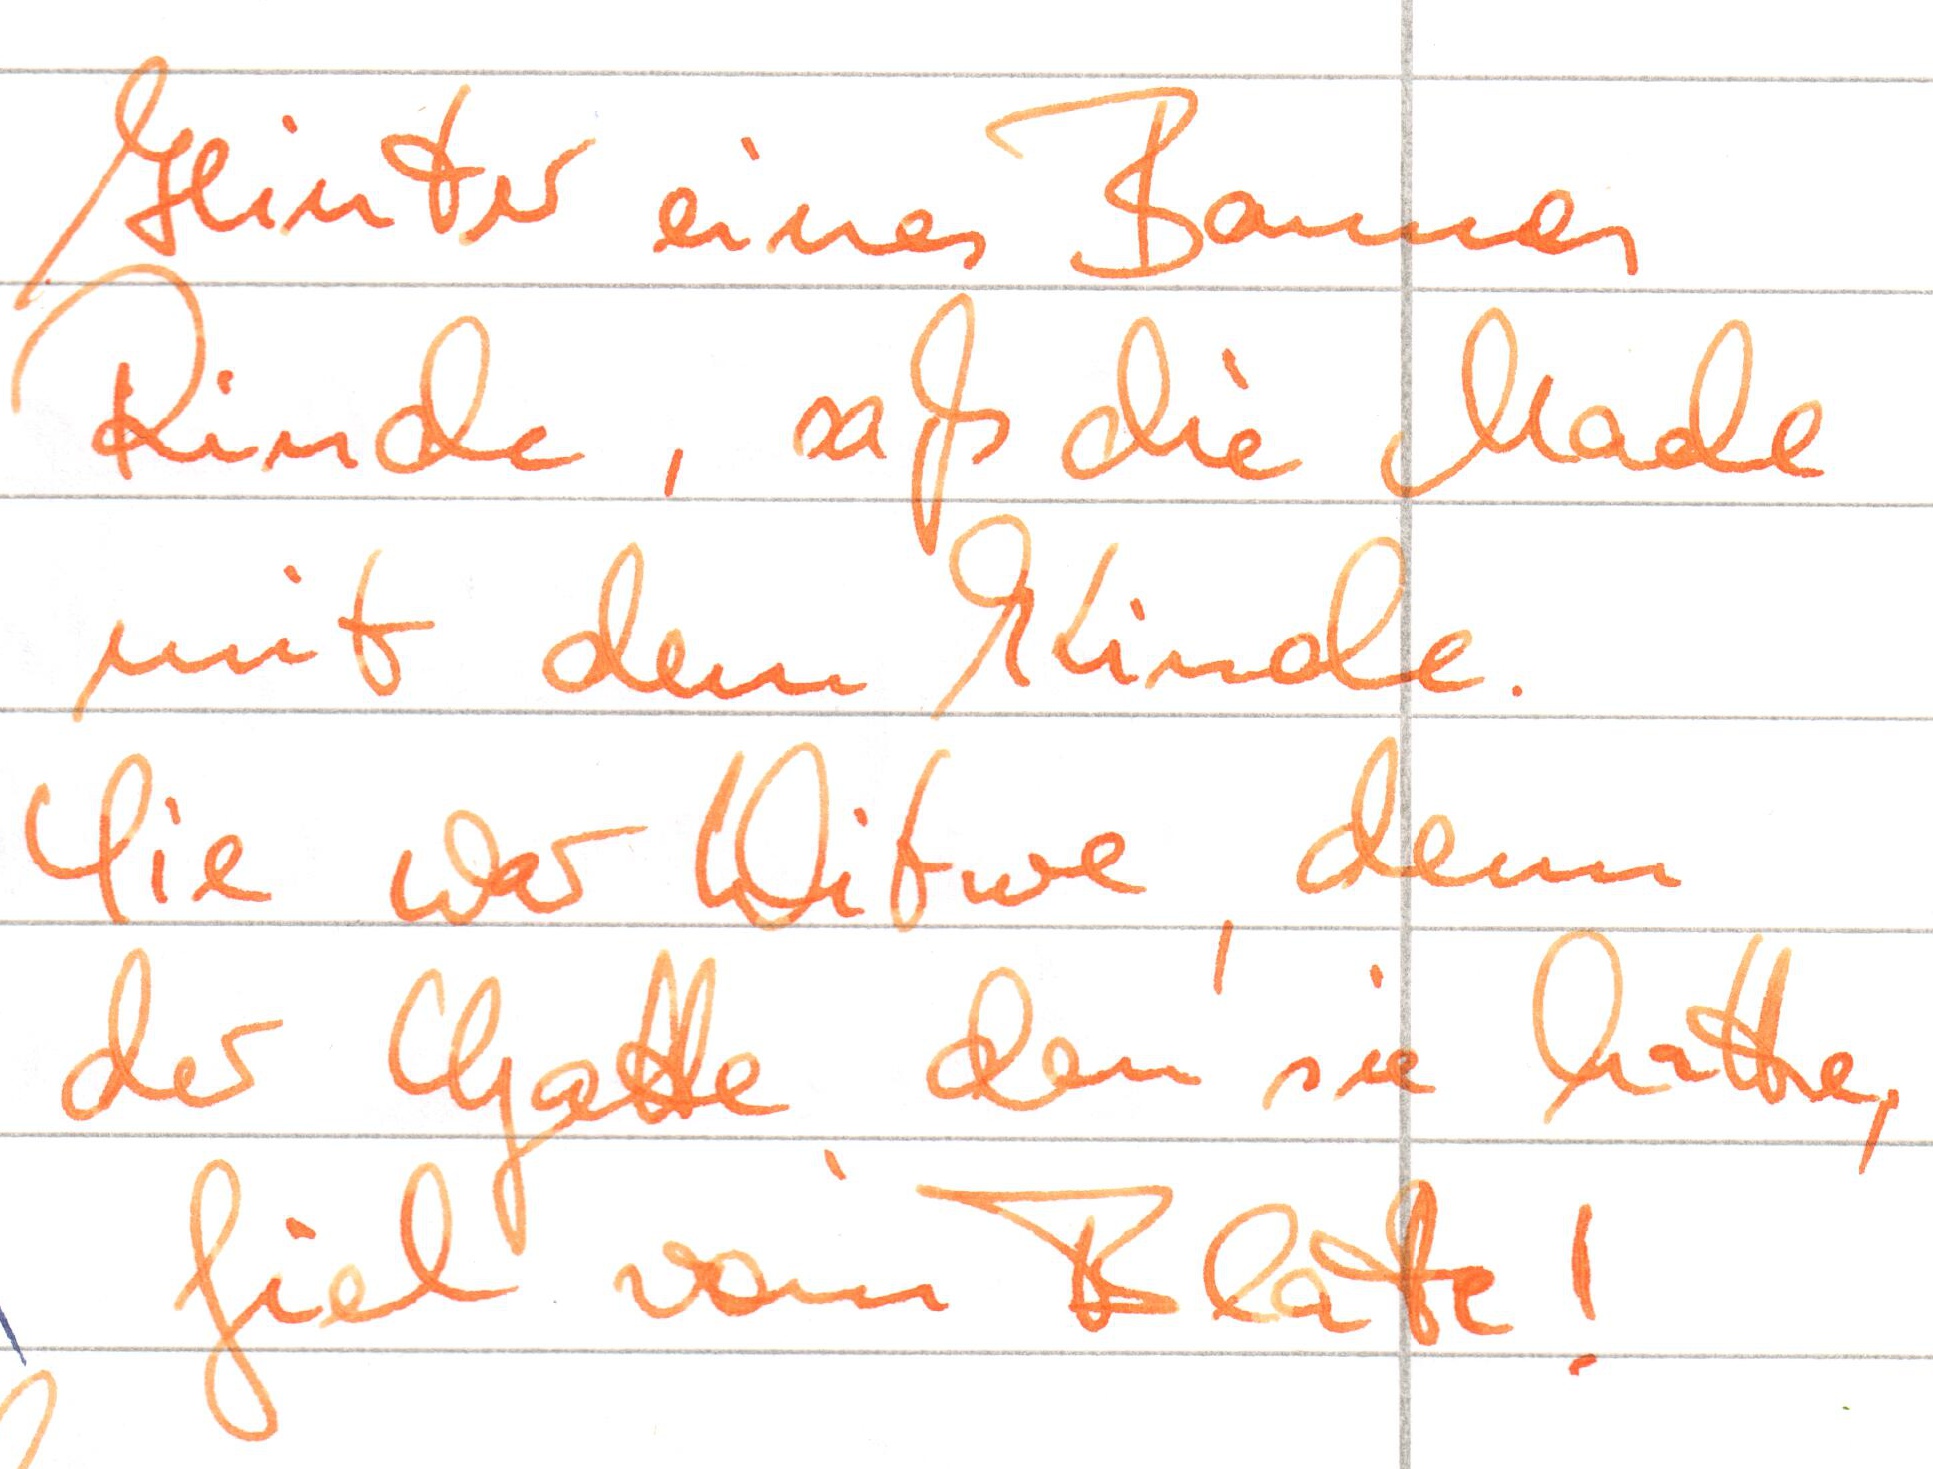 Hinter eines Baumes
Rinde, saß die Made
mit dem Kinde.
Sie war Witwe, denn
der Gatte den sie hatte,
fiel vom Blatte!